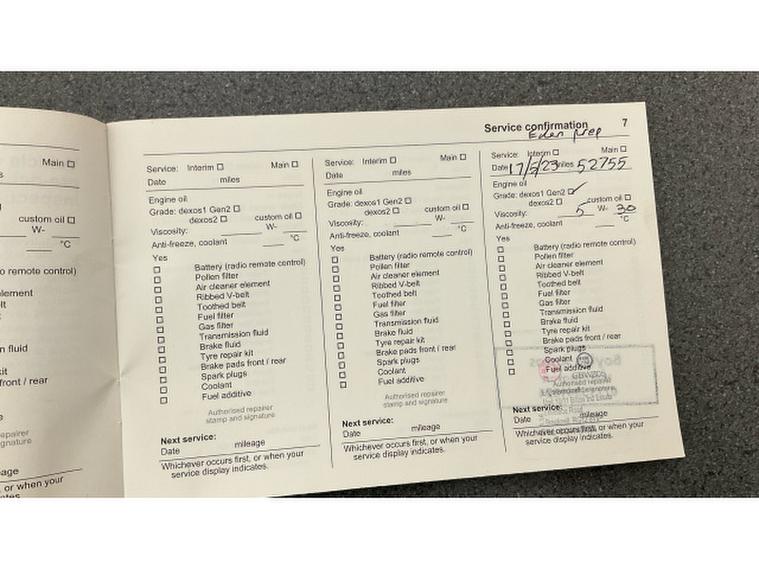 Service confirmation 7
Eden prep
Main ☐
custom oil ☐
W-
°C
o remote control)
lement
elt
n fluid
front / rear
epairer
gnature
eage
, or when your
Service: Interim ☐ Main ☐
Date miles
Engine oil
Grade: dexos1 Gen2 ☐
dexos2 ☐ custom oil ☐
Viscosity: W-
Anti-freeze, coolant °C
Yes
☐ Battery (radio remote control)
☐ Pollen filter
☐ Air cleaner element
☐ Ribbed V-belt
☐ Toothed belt
☐ Fuel filter
☐ Gas filter
☐ Transmission fluid
☐ Brake fluid
☐ Tyre repair kit
☐ Brake pads front / rear
☐ Spark plugs
☐ Coolant
☐ Fuel additive
Authorised repairer
stamp and signature
Next service:
Date mileage
Whichever occurs first, or when your
service display indicates.
Service: Interim ☐ Main ☐
Date miles
Engine oil
Grade: dexos1 Gen2 ☐
dexos2 ☐ custom oil ☐
Viscosity: W-
Anti-freeze, coolant °C
Yes
☐ Battery (radio remote control)
☐ Pollen filter
☐ Air cleaner element
☐ Ribbed V-belt
☐ Toothed belt
☐ Fuel filter
☐ Gas filter
☐ Transmission fluid
☐ Brake fluid
☐ Tyre repair kit
☐ Brake pads front / rear
☐ Spark plugs
☐ Coolant
☐ Fuel additive
Authorised repairer
stamp and signature
Next service:
Date mileage
Whichever occurs first, or when your
service display indicates.
Service: Interim ☐ Main ☐
Date 17/5/23 miles 52755
Engine oil
Grade: dexos1 Gen2 ☐ ✓
dexos2 ☐ custom oil ☐
Viscosity: 5 W- 30
Anti-freeze, coolant °C
Yes
☐ Battery (radio remote control)
☐ Pollen filter
☐ Air cleaner element
☐ Ribbed V-belt
☐ Toothed belt
☐ Fuel filter
☐ Gas filter
☐ Transmission fluid
☐ Brake fluid
☐ Tyre repair kit
☐ Brake pads front / rear
☐ Spark plugs
☐ Coolant
☐ Fuel additive
Authorised repairer
Next service:
Date mileage
Whichever occurs first, or when your
service display indicates.